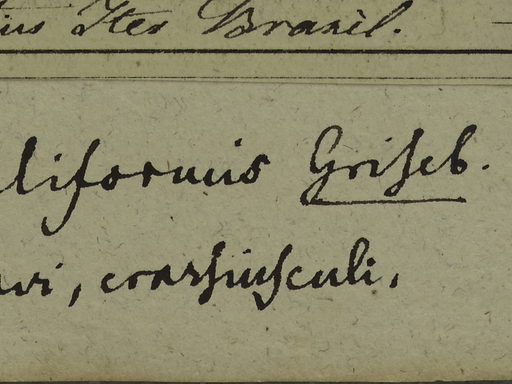 ius Iter Brasil.
liformis Griseb.
vi, crassiusculi,